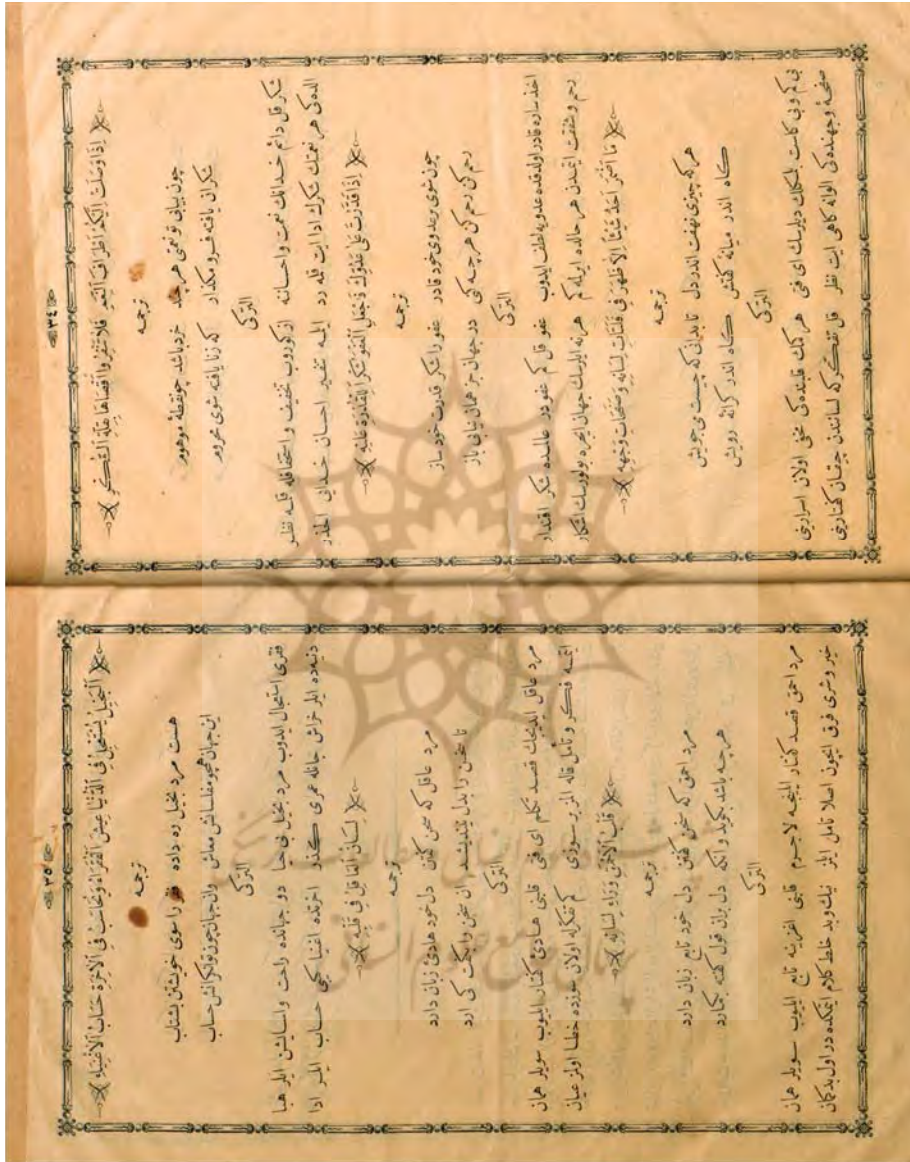 ﴿٣٤﴾
﴿ اِذَا وَصَلَتْ اِلَيْكُمْ اَطْرَافُ النِّعَمِ فَلَا تُنَفِّرُوا اَقْصَاهَا بِقِلَّةِ الشُّكْرِ ﴾
ترجمه
چون بيابى تو نعمتى هر چند خرد باشد چو نقطۀ موهوم
شكر آنى يافته فرو مگذار كه زنا يافته شوى محروم
التركى
شكر قل دائم خدانك نعمت واحسانه از كوروب تخفيف و استخفافله قلمه نظر
الده كى هر نعمتك شكرك ادا ايت قلمه رد ايلمه تنفير احسان خدايى الحذر
﴿ اِذَا قَدَرْتَ عَلَى عَدُوِّكَ فَاجْعَلِ الْعَفْوَ شُكْرًا لِلْقُدْرَةِ عَلَيْهِ ﴾
ترجمه
چون شوى بر عدوى خود قادر عفو را شكر قدرت خود ساز
رحم كن رحم كن هر چه كنى در جهان جز همان نيابى باز
التركى
اخذ ثاره قادر اولدقده عدويه لطف ايدوب عفو قل كم عفودر عالمده شكر اقتدار
رحم و شفقت ايتمدن هر حالده ايرلمه كم هر نه ايلرسك جهان ايچره بولورسك آشكار
﴿ مَا اَضْمَرَ اَحَدٌ شَيْئًا اِلَّا ظَهَرَ فِى فَلَتَاتِ لِسَانِهِ وَصَفَحَاتِ وَجْهِهِ ﴾
ترجمه
هر كه چيزى نهفت اندر دل تا بدانى كه چيست مى جويش
گاه اندر ميانۀ گفتش گاه اندر كرانۀ رويش
التركى
بى كم و بى كاست بلمكلك ديلرسك اى فتى هر كمك قلبنده كى مخفى اولان اسرارينى
صفحۀ وجهنده كى الوانه كاهى ايت نظر قل تفكر كه لسانندن چيقان كفتارينى
﴿٣٥﴾
﴿ اَلْبَخِيلُ يَسْتَعْجِلُ فِى الدُّنْيَا عَيْشَ الْفُقَرَاءِ وَيُحَاسَبُ فِى الْآخِرَةِ حِسَابَ الْاَغْنِيَاءِ ﴾
ترجمه
هست مرد بخيل ره داده فقر را سوى خويشتن بشتاب
اين جهان همچو مفلسانش معاش وان جهان چون توانكرانش حساب
التركى
فقرى استعجال ايدوب مرد بخيل بى حيا دو جهانده راحت و آسايشن ايلر هبا
دنيده ايلر خراش جانله عمرى گذر آخرتده اغنيا كبى حساب ايلر ادا
﴿ لِسَانُ الْعَاقِلِ فِى قَلْبِهِ ﴾
ترجمه
مرد عاقل كه سخن گفتن دل خود هادى زبان دارد
تا سخن را بدل نينديشد آن سخن را بكفت كى آرد
التركى
مرد عاقل ايديجك قصد تكلم اى فتى قلبنى هادىء گفتار ايليوب سويلر همان
ايتمسه فكر و تأمل قاله المز بر سوزى كم تفكرله اولان سوزده خطا اولمز عيان
﴿ قَلْبُ الْاَحْمَقِ وَرَاءَ لِسَانِهِ ﴾
ترجمه
مرد احمق كه سخن گفتن دل خود تابع زبان دارد
هر چه باشد بگويد و آنگه دل بران قول گفته بگمارد
التركى
مرد احمق قصد گفتار ايليجه لاجرم قلبنى آغزينه تابع ايليوب سويلر همان
خير و شرى فرق ايچون اصلا تأمل ايلمز نيك و بد خلط كلام ايتمكده در اول بدكمان
پرتال جامع علوم انسانى